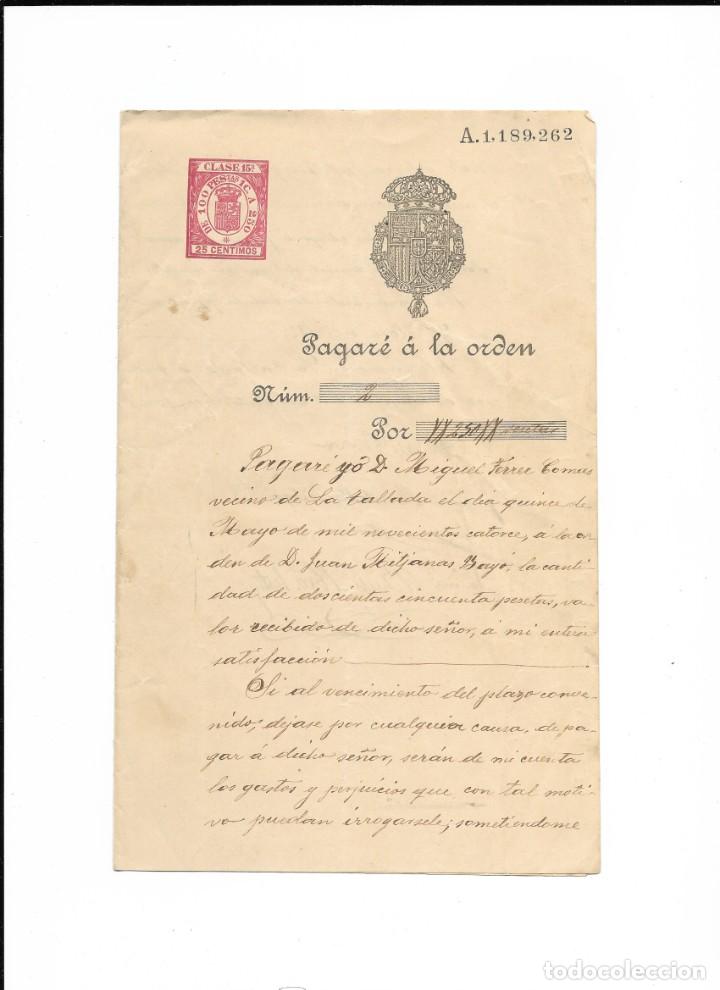 A.1,189,262
CLASE 15ª
DE 100 PESTAS 1 C. A 250
25 CENTIMOS
Pagaré á la orden
Núm. 2
Por XX250XX pesetas
Pagaré yó D. Miguel Ferrer Comas
vecino de La Tallada el dia quince de
Mayo de mil novecientos catorce, á la or
den de D. Juan Pitjanas Bayó, la canti
dad de doscientas cincuenta pesetas, va-
lor recibido de dicho señor, á mi entera
satisfacción
Si al vencimiento del plazo conve-
nido, dejase por cualquia causa, de pa-
gar á dicho señor, serán de mi cuenta
los gastos y perjuicios que con tal moti-
vo puedan irrogarsele; sometiendome
todocoleccion
todocoleccion.net